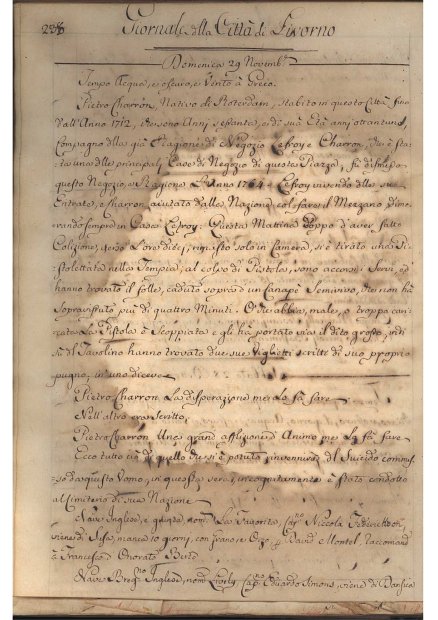 238 Giornale della Città di Livorno
Domenica 29 Novemb.e
Tempo Acqua, e oscuro, e Vento à Greco.
Pietro Charron, Nativo di Roterdam, stabito in questa Città fino
dall'Anno 1712, che sono Anni sessanta, e di sua Età anni ottantuno,
Compagno della già Ragione di Negozio Lefroy e Charron, che è sta-
ta una delle principali Case di Negozio di questa Piazza, fù dismesso
questo Negozio, e Ragione L'Anno 1764 e Lefroy vivendo delle sue
Entrate, e Charron aiutato dalle Nazione col fare il Mezzano dimo-
rando sempre in Casa Lefroy: Questa Mattina doppo d'aver fatto
Colizione, verso L'ore dieci, rimasto solo in Camera, si è tirato una Pi-
stolettata nella Tempia, al colpo di Pistola, sono accorsi i Servi, ed
hanno trovato il folle, caduto sopra d'un Canapè Semivivo, che non hà
Sopravissuto più di quattro Minuti. O che abbia, male, o troppo cari-
cata La Pistola è Scoppiata e gli hà portato via il dito grosso, indi
sù il Tavolino hanno trovato due sue Viglietti scritti di suo proprio
pugno, in uno diceva
Pietro Charron La disperazione me lo fà fare
Nell'altro era scritto
Pietro Charron Una grand'afflizione d'Animo me Lo fà fare
Ecco tutto ciò di quello che si è potuto rinvenire del Suicido commes-
so da questo Vomo, in questa sera, incognitamente è stato condotto
al Cimiterio di sua Nazione
Nave Inglese, e quinta, nom.ta La Favorita, Cap.no Niccola
viene di manca 10 giorni, con Grano e Orzo, p David Montel, raccomand.
à Francesco d'Onorato Berte
Nave Inglese, nom.ta Cap.no Eduardo Simons, viene di Dansica